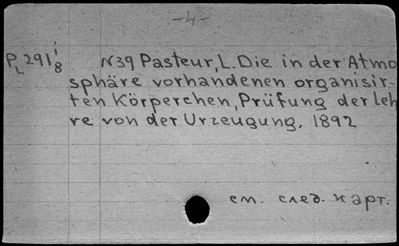 -4-
PL291 i/8 N39 Pasteur, L. Die in der Atmo
sphäre vorhandenen organisir-
ten Körperchen, Prüfung der Leh
re von der Urzeugung. 1892
см. след. карт.